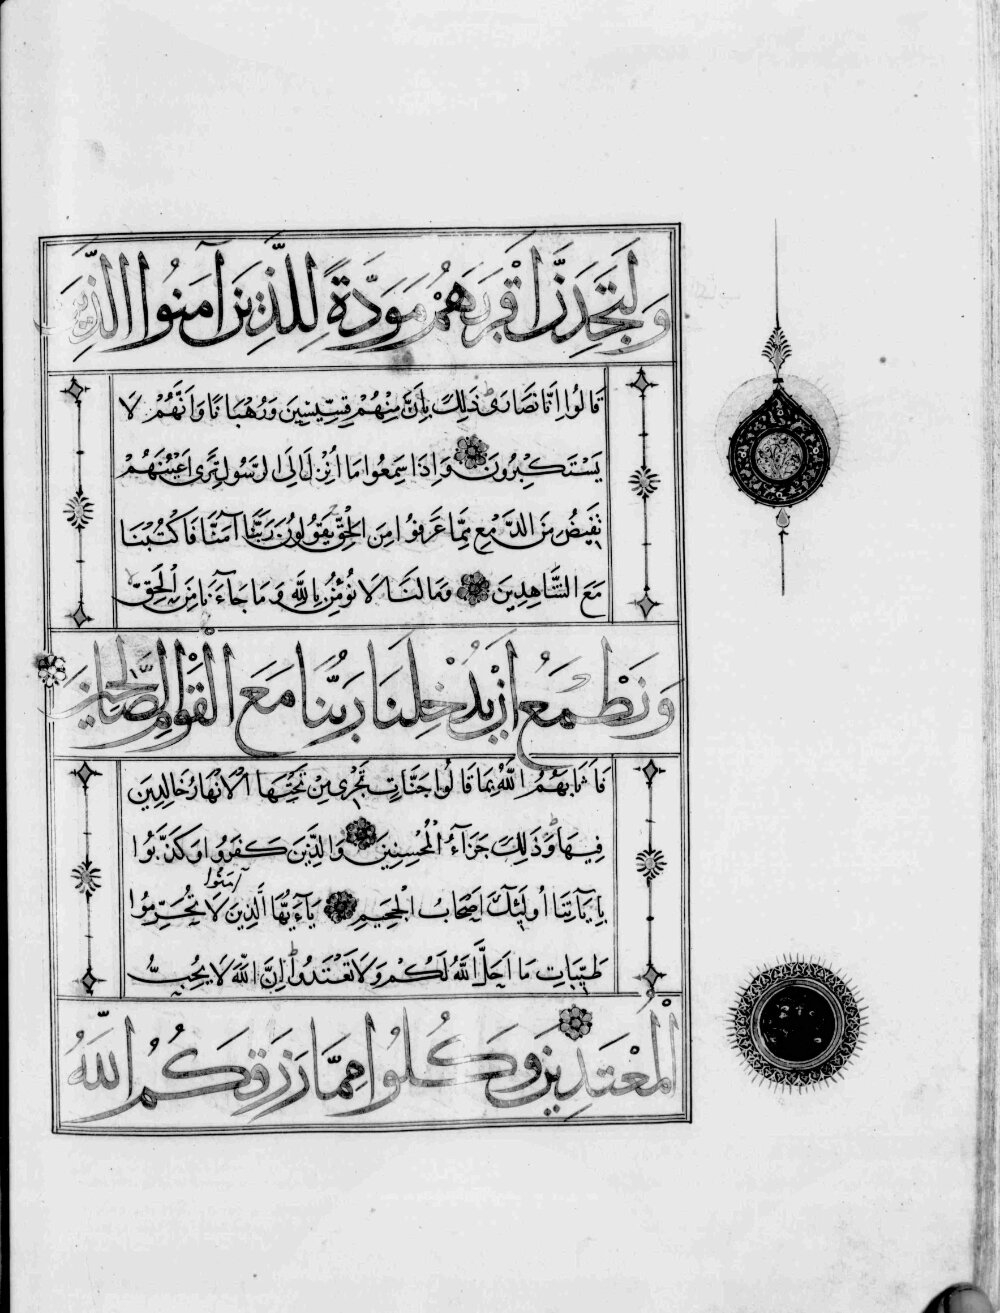 وَلَتَجِدَنَّ اَقْرَبَهُمْ مَوَدَّةً لِلَّذِينَ آمَنُوا الَّذِينَ
قَالُوا اِنَّا نَصَارَى ذَلِكَ بِاَنَّ مِنْهُمْ قِسِّيسِينَ وَرُهْبَانًا وَاَنَّهُمْ لَا
يَسْتَكْبِرُونَ وَاِذَا سَمِعُوا مَا اُنْزِلَ اِلَى الرَّسُولِ تَرَى اَعْيُنَهُمْ
تَفِيضُ مِنَ الدَّمْعِ مِمَّا عَرَفُوا مِنَ الْحَقِّ يَقُولُونَ رَبَّنَا آمَنَّا فَاكْتُبْنَا
مَعَ الشَّاهِدِينَ وَمَا لَنَا لَا نُؤْمِنُ بِاللَّهِ وَمَا جَآءَنَا مِنَ الْحَقِّ
وَنَطْمَعُ اَنْ يُدْخِلَنَا رَبُّنَا مَعَ الْقَوْمِ الصَّالِحِينَ
فَاَثَابَهُمُ اللَّهُ بِمَا قَالُوا جَنَّاتٍ تَجْرِي مِنْ تَحْتِهَا الْاَنْهَارُ خَالِدِينَ
فِيهَا وَذَلِكَ جَزَآءُ الْمُحْسِنِينَ وَالَّذِينَ كَفَرُوا وَكَذَّبُوا
آمَنُوا
بِاٰيَاتِنَا اُولَئِكَ اَصْحَابُ الْجَحِيمِ يَآءَيُّهَا الَّذِينَ لَا تُحَرِّمُوا
طَيِّبَاتِ مَا اَحَلَّ اللَّهُ لَكُمْ وَلَا تَعْتَدُوا اِنَّ اللَّهَ لَا يُحِبُّ
الْمُعْتَدِينَ وَكُلُوا مِمَّا رَزَقَكُمُ اللَّهُ